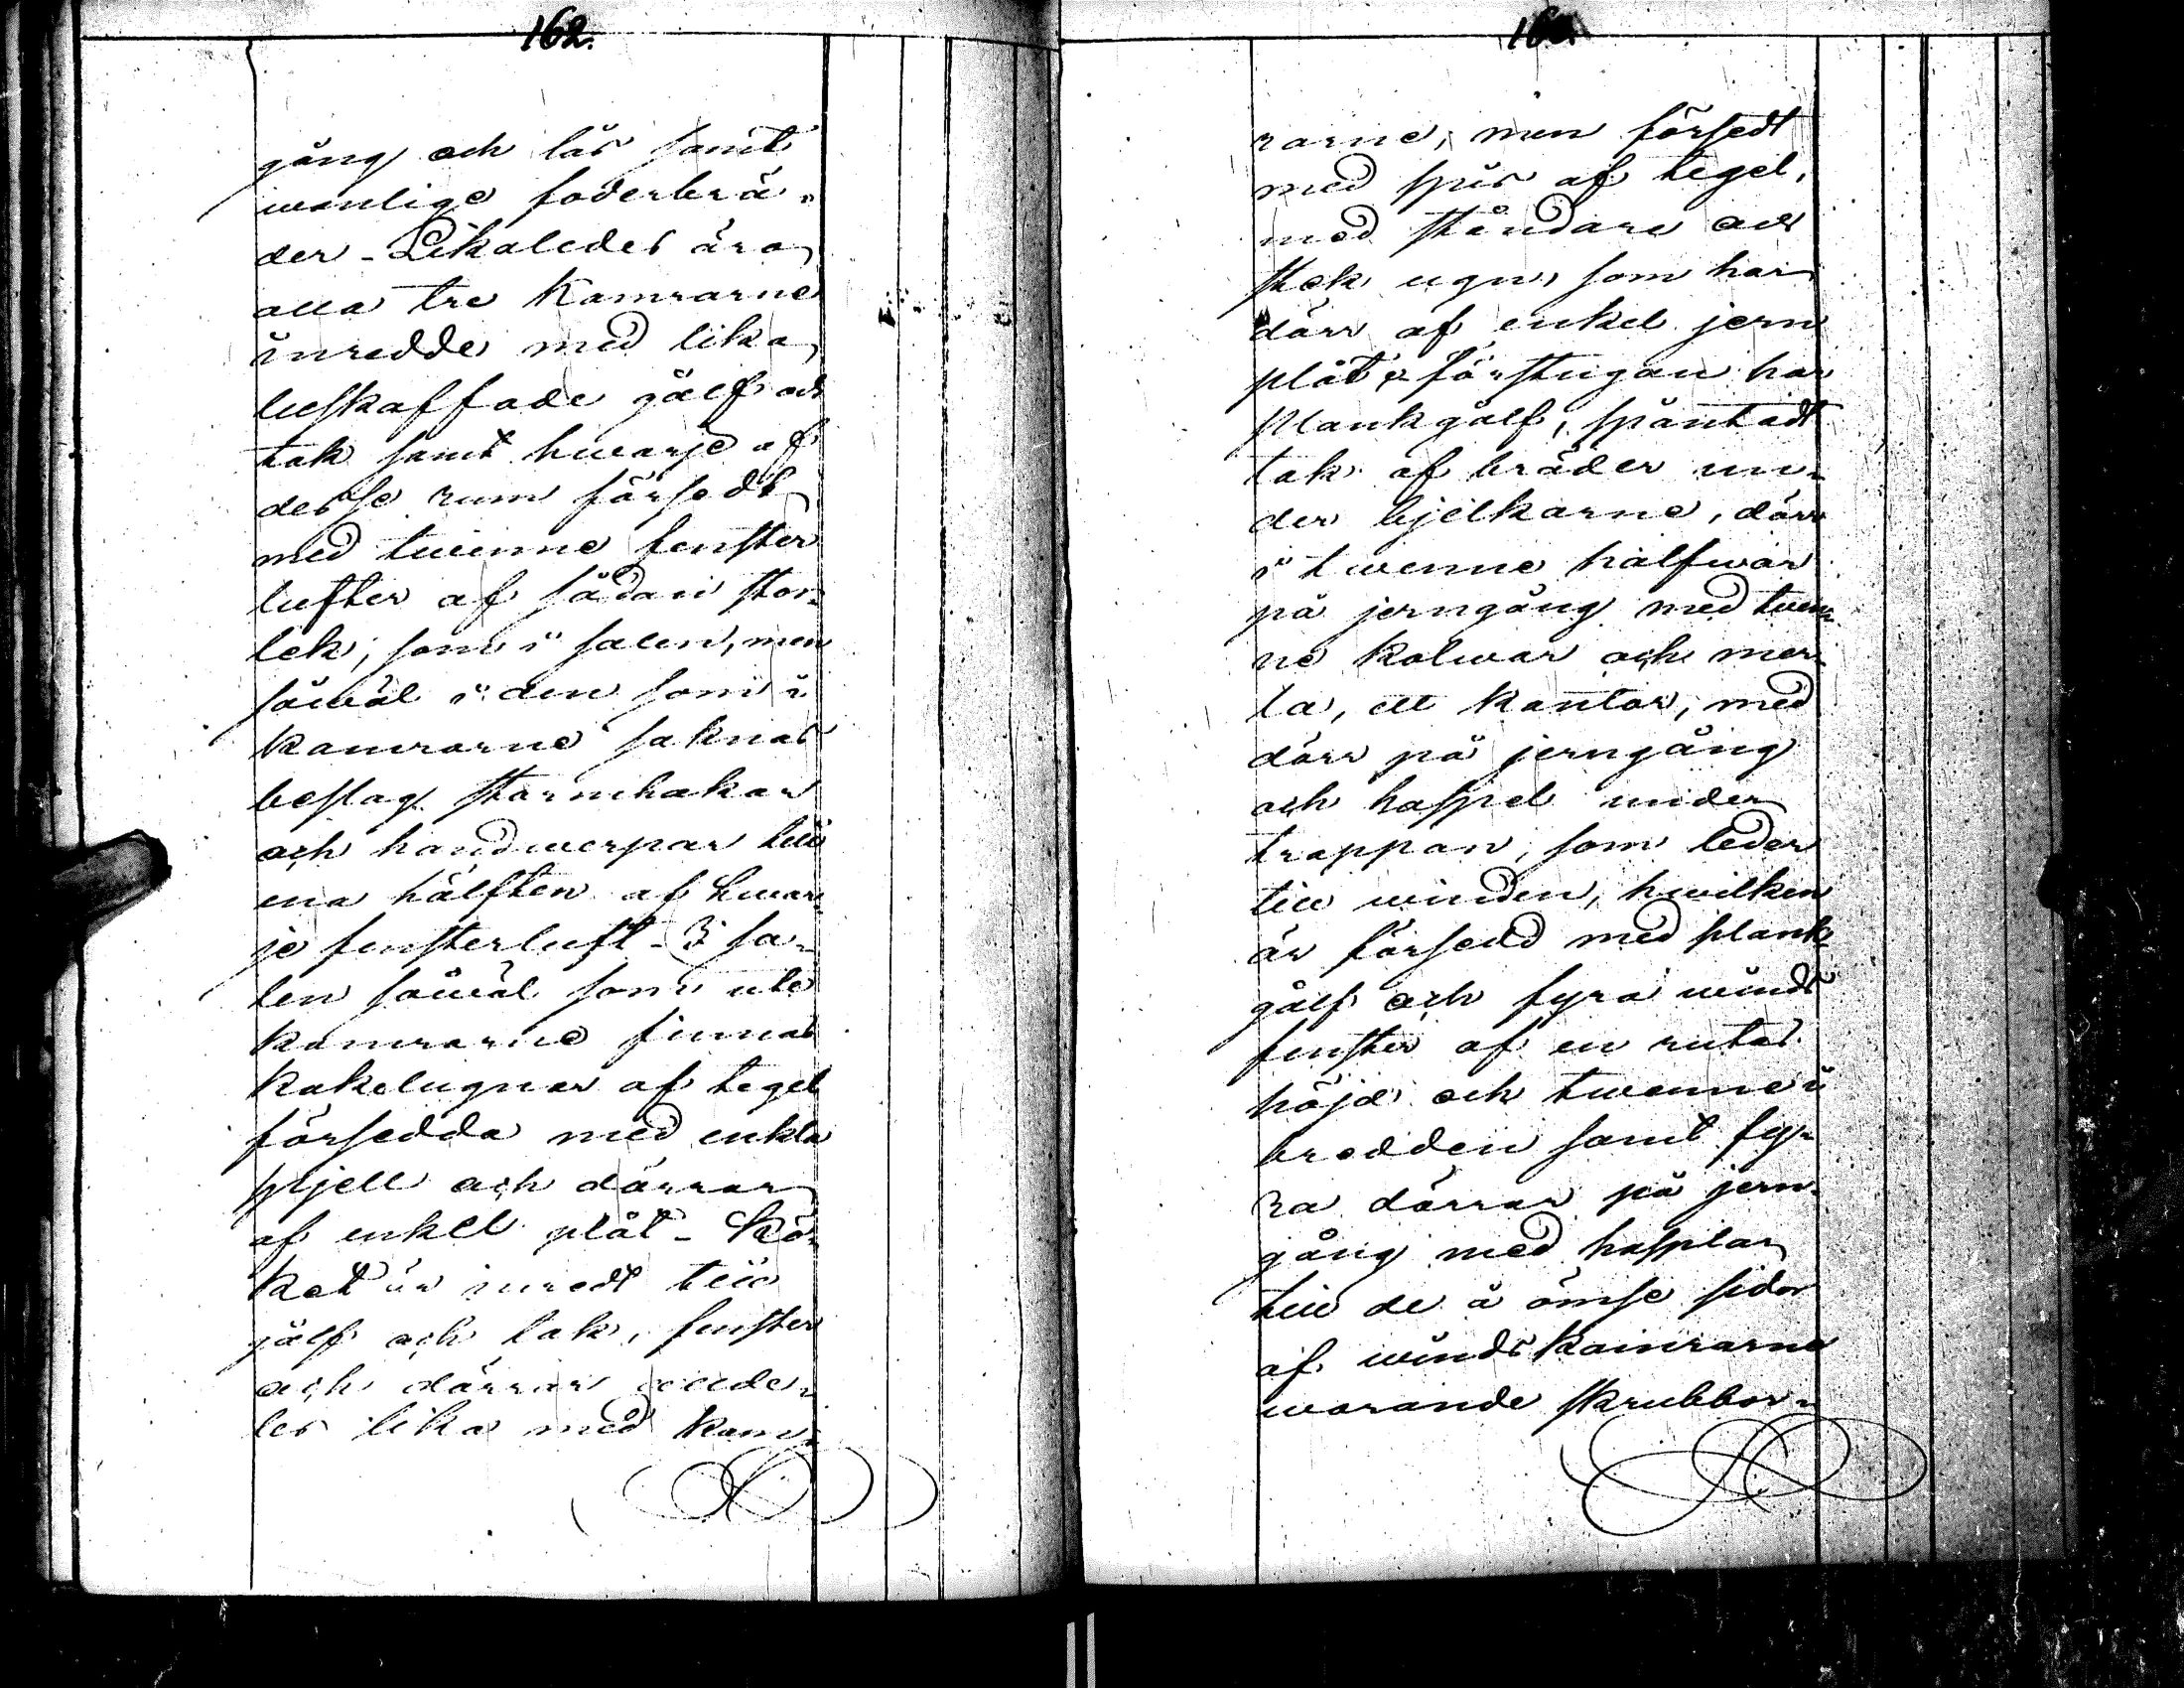 162.
gång och lås samt
wanlige foderbrä-
der - Likaledes äro
alla tre Kamrarne
inredde med lika
beskaffade gålf och
tak samt hwarje af
desse rum försedt
med twenne fenster
lufter af sådan stor-
lek, som i salen, men
såwäl i den som i
kamrarne saknas
beslag stormhakar
och handwerpar till
ena hälften af hwar-
je fensterluft - I sa-
len såwäl som uti
kamrarne finnas
kakelugnar af tegel
försedda med enkla
spjell och dörrar
af enkel plåt - Kö-
ket är inredt till
gålf och tak, fenster
och dörrar allde-
les lika med kam-
rarne, men försedt
med spis af tegel,
med ståndare och
stek ugn, som har
dörr af enkel jern
plåt & förstugan har
plankgålf, spåntadt
tak af bräder un-
der bjelkarne, dörr
i twenne halfwor
på jerngång med twen-
ne kolwar och mär-
la, ett kontor, med
dörr på jerngång
och haspel under
trappan, som leder
till winden, hwilken
är försedd med plank-
gålf och fyra winds
fenster af en rutas
höjd och twenne i
bredden samt fy-
ra dörrar på jern-
gång med hasplar
till de å ömse sidor
af windskamrarne
warande skrubbor-